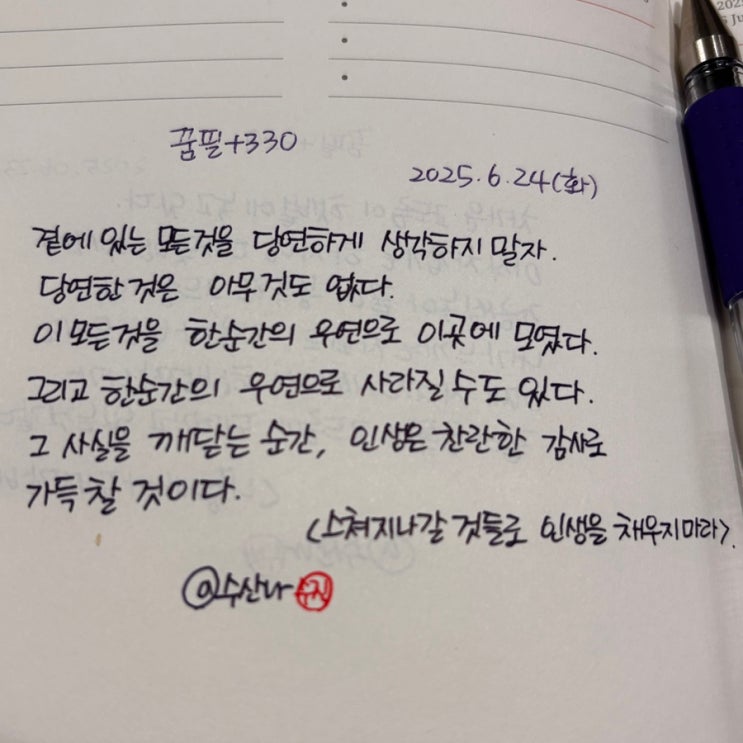 2025
5 Ju
꿈필+330
2025.6.24(화)
곁에 있는 모든것을 당연하게 생각하지 말자.
당연한 것은 아무것도 없다.
이 모든것을 한순간의 우연으로 이곳에 모였다.
그리고 한순간의 우연으로 사라질 수도 있다.
그 사실을 깨닫는 순간, 인생은 찬란한 감사로
가득 찰 것이다.
<스쳐지나갈 것들로 인생을 채우지마라>.
@수산나